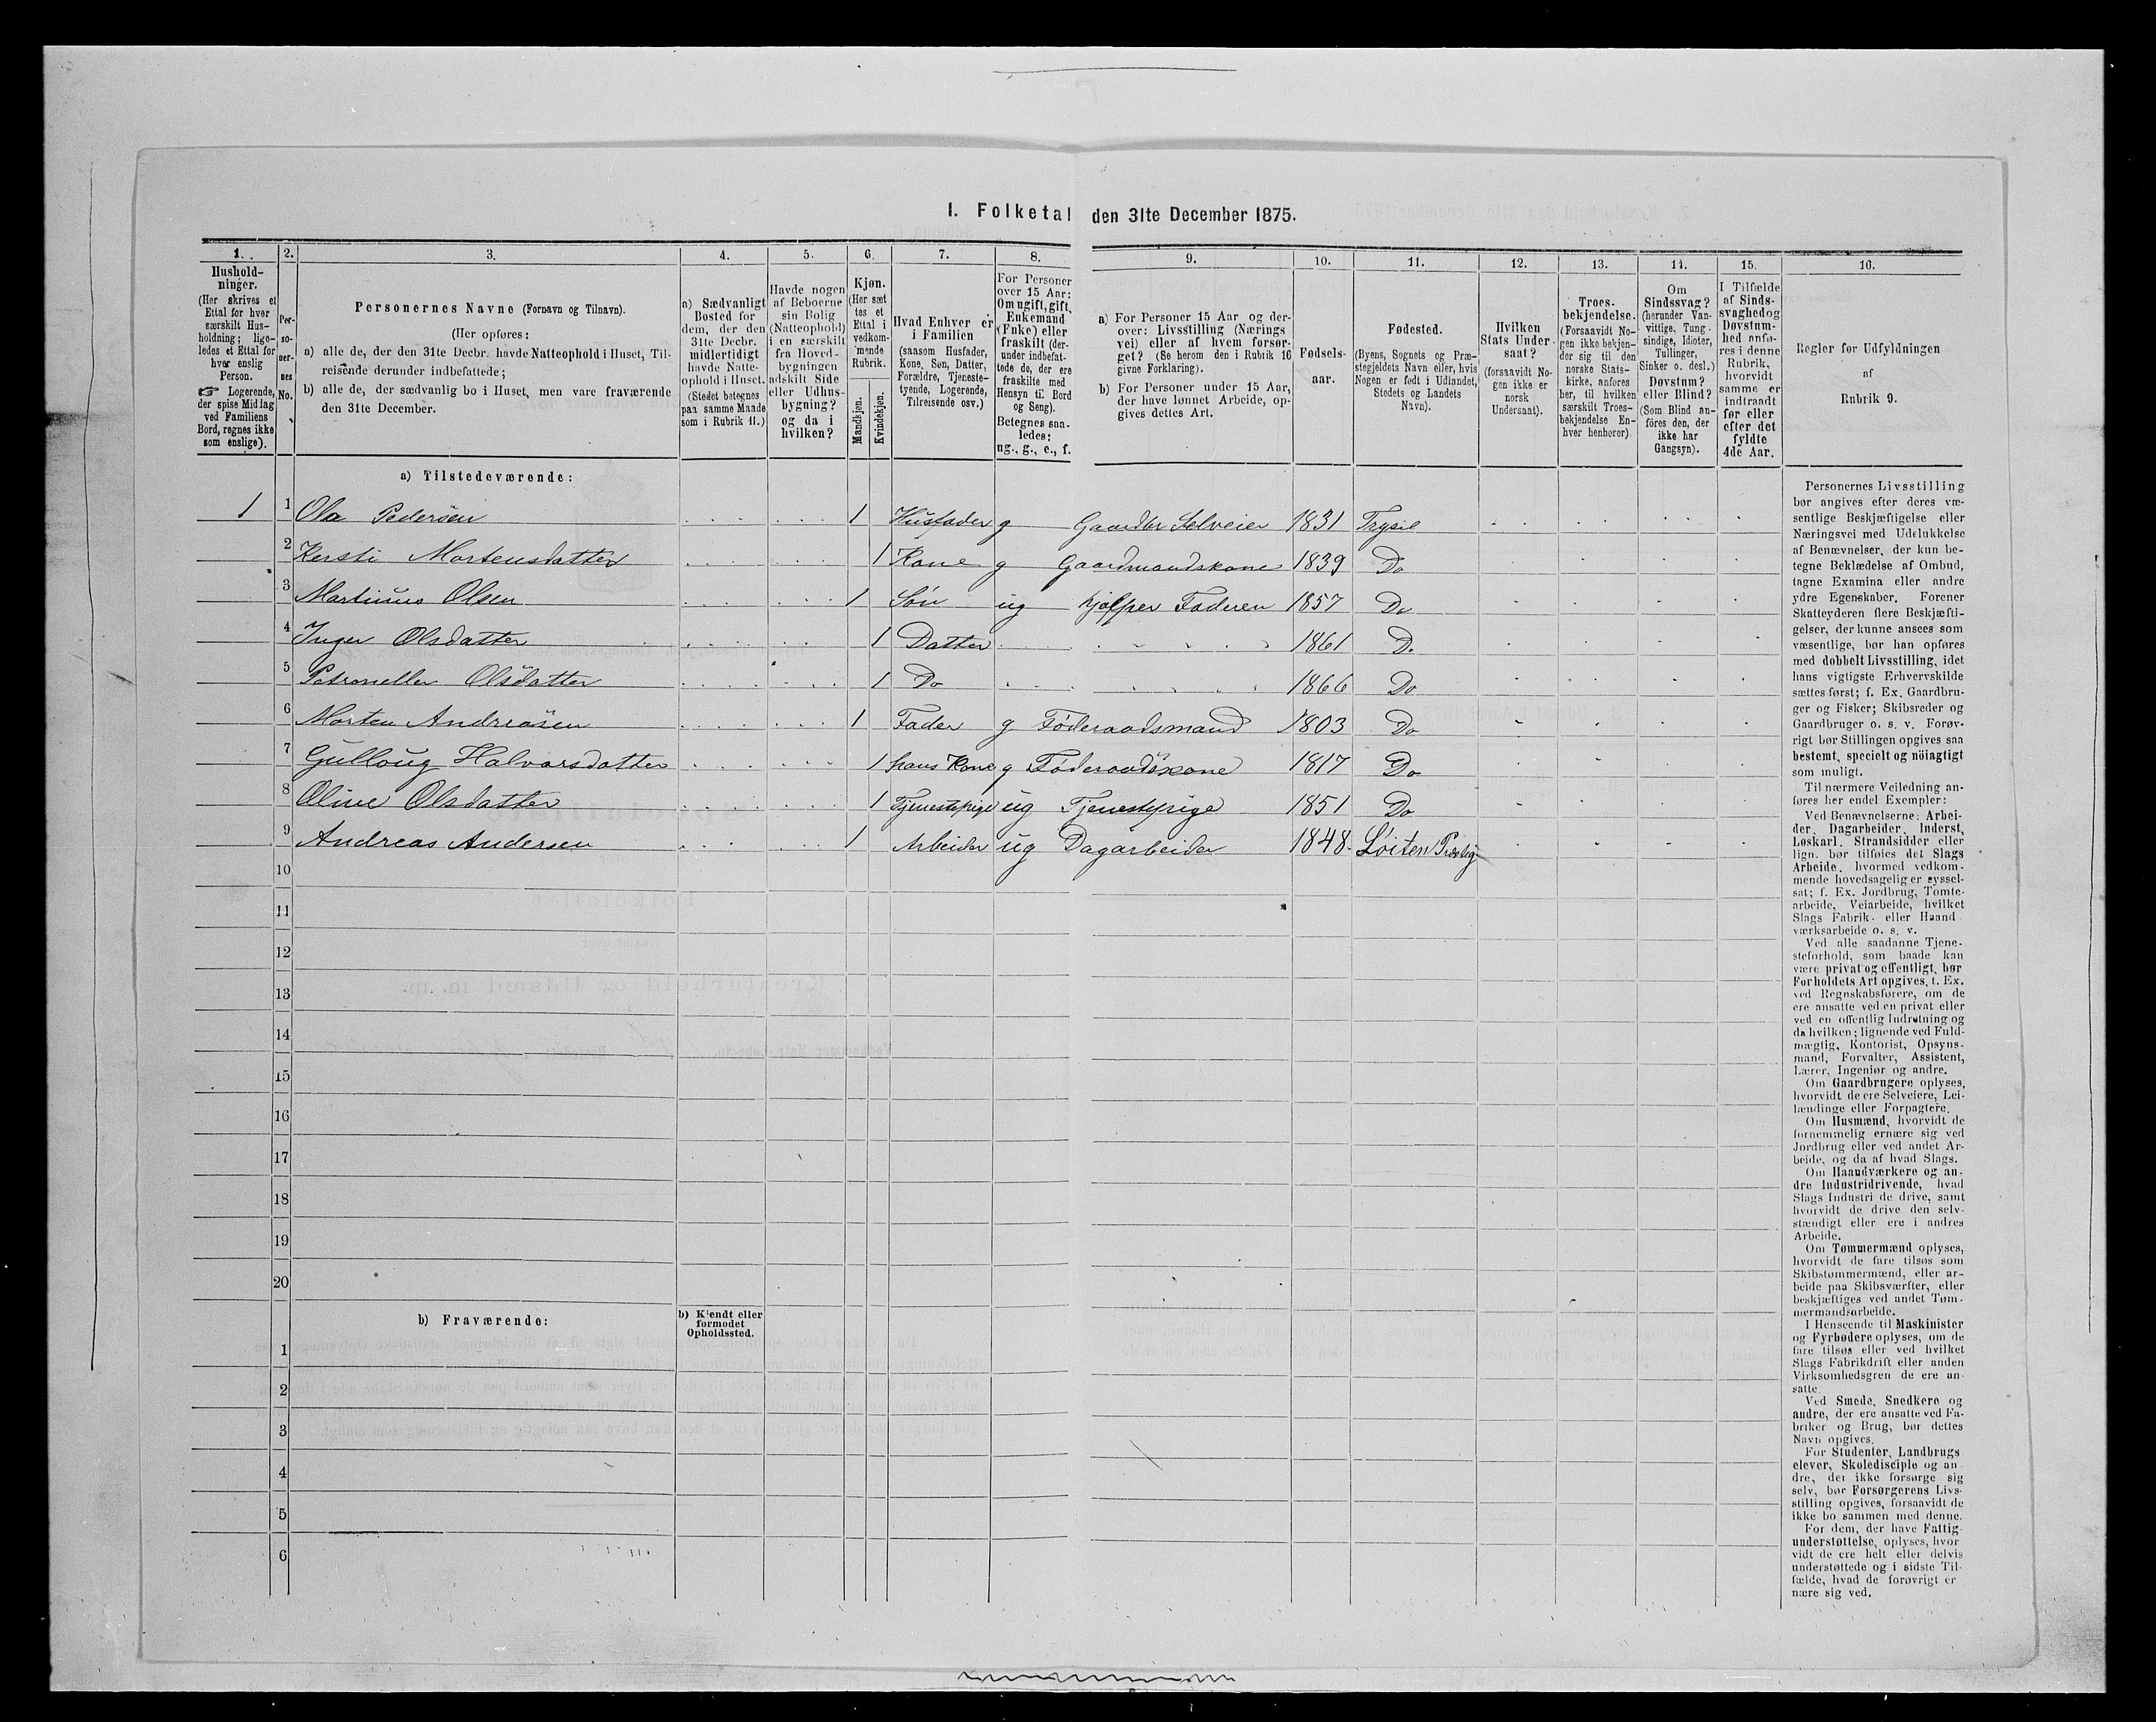 I. Folketal den 31te December 1875.
1.
Hushold-
ninger.
(Her skrives et
Ettal for hver
særskilt Hus-
holdning; lige-
ledes et Ettal for
hver enslig
Person.
☞ Logerende,
der spise Middag
ved Familiens
Bord, regnes ikke
som enslige).
2.
Per-
so-
ner-
nes
No.
3.
Personernes Navne (Fornavn og Tilnavn).
(Her opføres:
a) alle de, der den 31te Decbr. havde Natteophold i Huset, Til-
reisende derunder indbefattede;
b) alle de, der sædvanlig bo i Huset, men vare fraværende
den 31te December.
4.
a) Sædvanligt
Bosted for
dem, der den
31te Decbr.
midlertidigt
havde Natte-
ophold i Huset.
(Stedet betegnes
paa samme Maade
som i Rubrik 11.)
5.
Havde nogen
af Beboerne
sin Bolig
(Natteophold)
i en særskilt
fra Hoved-
bygningen
adskilt Side
eller Udhus-
bygning?
og da i
hvilken?
6.
Kjøn.
(Her sæt
tes et
Ettal i
vedkom-
mende
Rubrik.
Mandkjøn.
Kvindekjøn.
7.
Hvad Enhver er
i Familien
(saasom Husfader,
Kone, Søn, Datter,
Forældre, Tjeneste-
tyende, Logerende,
Tilreisende osv.)
8.
For Personer
over 15 Aar:
Om ugift, gift,
Enkemand
(Enke) eller
fraskilt (der-
under indbefat-
tede de, der ere
fraskilte med
Hensyn til Bord
og Seng).
Betegnes saa-
ledes:
ug., g., e., f.
9.
a) For Personer 15 Aar og der-
over: Livsstilling (Nærings
vei) eller af hvem forsør-
get? (Se herom den i Rubrik 16
givne Forklaring).
b) For Personer under 15 Aar,
der have lønnet Arbeide, op-
gives dettes Art.
10.
Fødsels-
aar.
11.
Fødested.
(Byens, Sognets og Præ-
stegjeldets Navn eller, hvis
Nogen er født i Udlandet,
Stedets og Landets
Navn).
12.
Hvilken
Stats Under
saat?
(forsaavidt No-
gen ikke er
norsk
Undersaat).
13.
Troes-
bekjendelse.
(Forsaavidt No-
gen ikke bekjen-
der sig til den
norske Stats-
kirke, anføres
her, til hvilken
særskilt Troes-
bekjendelse En-
hver henhører).
14.
Om
Sindssvag?
(herunder Van-
vittige, Tung-
sindige, Idioter,
Tullinger,
Sinker o. desl.)
Døvstum?
eller Blind?
(Som Blind an-
føres den, der
ikke har
Gangsyn).
15.
I Tilfælde
af Sinds-
svaghed og
Døvstum-
hed anfø-
res i denne
Rubrik,
hvorvidt
samme er
indtraadt
før eller
efter det
fyldte
4de Aar.
16.
Regler for Udfyldningen
af
Rubrik 9.
a) Tilstedeværende:
1 1 Ola Pedersen 1 Husfader g Gaardbr Selveier 1831 Trysil
2 Kersti Mortensdatter 1 Kone g Gaardmandskone 1839 Do
3 Martinus Olsen 1 Søn ug hjælper Faderen 1857 Do
4 Inger Olsdatter 1 Datter 1861 Do
5 Petronelle Olsdatter 1 Do 1866 Do
6 Morten Andreasen 1 Fader g Føderaadsmand 1803 Do
7 Gulloug Halvorsdatter 1 hans Kone g Føderaadskone 1817 Do
8 Oline Olsdatter 1 Tjenestepige ug Tjenestepige 1851 Do
9 Andreas Andersen 1 Arbeider ug Dagarbeider 1848. Løiten
10
11
12
13
14
15
16
17
18
19
20
b) Fraværende:
b) Kjendt eller
formodet
Opholdssted.
1
2
3
4
5
6
Personernes Livsstilling
bør angives efter deres væ-
sentlige Beskjæftigelse eller
Næringsvei med Udelukkelse
af Benævnelser, der kun be-
tegne Beklædelse af Ombud,
tagne Examina eller andre
ydre Egenskaber. Forener
Skatteyderen flere Beskjæfti-
gelser, der kunne ansees som
væsentlige, bør han opføres
med dobbelt Livsstilling, idet
hans vigtigste Erhvervskilde
sættes først; f. Ex. Gaardbru-
ger og Fisker; Skibsreder og
Gaardbruger o. s. v. Forøv-
rigt bør Stillingen opgives saa
bestemt, specielt og nöiagtigt
som muligt.
Til nærmere Veiledning an-
føres her endel Exempler:
Ved Benævnelserne: Arbei-
der, Dagarbeider, Inderst,
Løskarl, Strandsidder eller
lign. bør tilføies det Slags
Arbeide, hvormed vedkom-
mende hovedsagelig er syssel-
sat; f. Ex. Jordbrug, Tomte-
arbeide, Veiarbeide, hvilket
Slags Fabrik- eller Haand-
værksarbeide o. s. v.
Ved alle saadanne Tjene-
steforhold, som baade kan
være privat og offentligt, bør
Forholdets Art opgives, t. Ex.
ved Regnskabsførere, om de
ere ansatte ved en privat eller
ved en offentlig Indretning og
da hvilken; lignende ved Fuld-
mægtig, Kontorist, Opsyns-
mand, Forvalter, Assistent,
Lærer, Ingeniør og andre.
Om Gaardbrugere oplyses,
hvorvidt de ere Selveiere, Lei-
lændinge eller Forpagtere.
Om Husmænd, hvorvidt de
fornemmelig ernære sig ved
Jordbrug eller ved andet Ar-
beide, og da af hvad Slags.
Om Haandværkere og an-
dre Industridrivende, hvad
Slags Industri de drive, samt
hvorvidt de drive den selv-
stændigt eller ere i andres
Arbeide.
Om Tømmermænd oplyses,
hvorvidt de fare tilsøs som
Skibstømmermænd, eller ar-
beide paa Skibsværfter, eller
beskjæftiges ved andet Tøm-
mermandsarbeide.
I Henseende til Maskinister
og Fyrbødere oplyses, om de
fare tilsøs eller ved hvilket
Slags Fabrikdrift eller anden
Virksomhedsgren de ere an-
satte.
Ved Smede, Snedkere og
andre, der ere ansatte ved Fa-
briker og Brug, bør dettes
Navn opgives.
For Studenter, Landbrugs
elever, Skoledisciple og an
dre, der ikke forsørge sig
selv, bør Forsørgerens Livs-
stilling opgives, forsaavidt de
ikke bo sammen med denne.
For dem, der have Fattig-
understøttelse, oplyses, hvor
vidt de ere helt eller delvis
understøttede og i sidste Til-
fælde, hvad de forøvrigt er
nære sig ved.